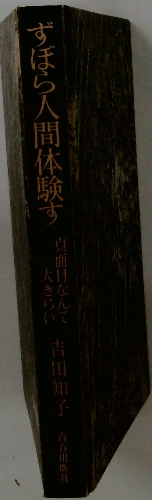 ずぼら人間体験す
真面目なんて
大きらい
吉田知子
青春出版社